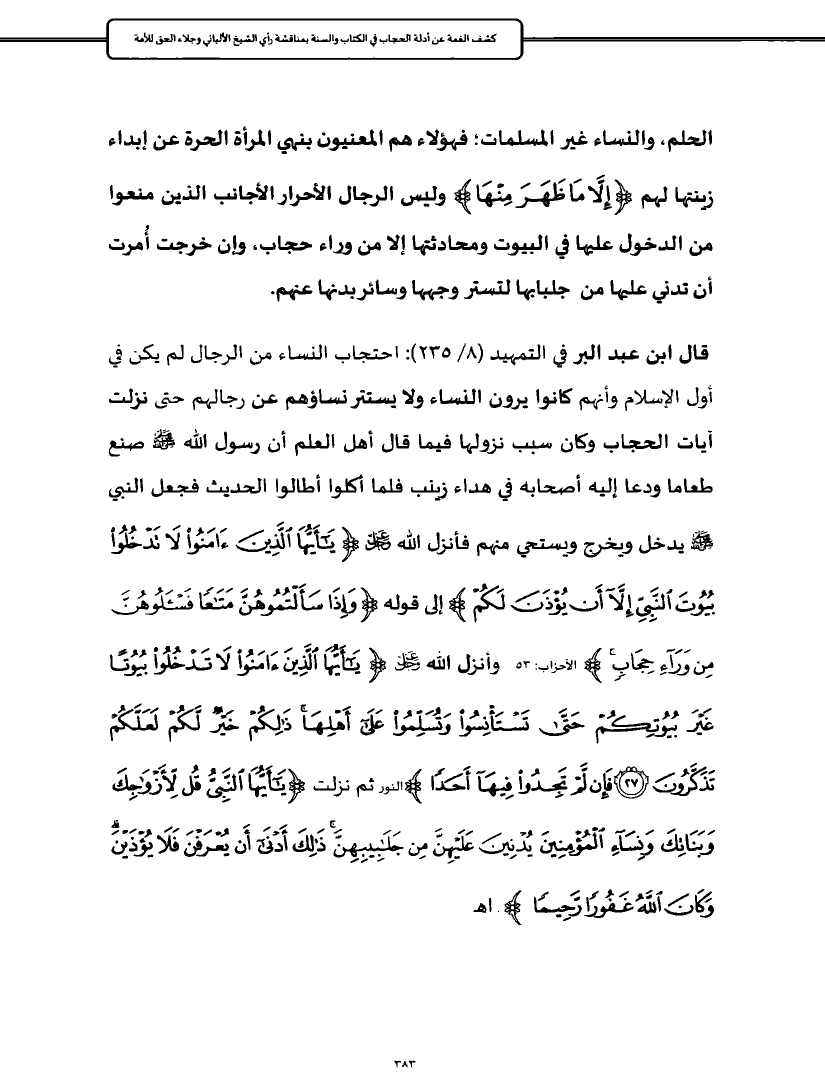 كشف الغمة عن أدلة الحجاب في الكتاب والسنة بمناقشة رأي الشيخ الألباني وجلاء الحق للأمة
الحلم، والنساء غير المسلمات؛ فهؤلاء هم المعنيون بنهي المرأة الحرة عن إبداء
زينتها لهم ﴿إِلَّا مَا ظَهَرَ مِنْهَا﴾ وليس الرجال الأحرار الأجانب الذين منعوا
من الدخول عليها في البيوت ومحادثتها إلا من وراء حجاب، وإن خرجت أُمرت
أن تدني عليها من جلبابها لتستر وجهها وسائر بدنها عنهم.
قال ابن عبد البر في التمهيد (٨/ ٢٣٥): احتجاب النساء من الرجال لم يكن في
أول الإسلام وأنهم كانوا يرون النساء ولا يستتر نساؤهم عن رجالهم حتى نزلت
آيات الحجاب وكان سبب نزولها فيما قال أهل العلم أن رسول الله ﷺ صنع
طعاما ودعا إليه أصحابه في هداء زينب فلما أكلوا أطالوا الحديث فجعل النبي
ﷺ يدخل ويخرج ويستحي منهم فأنزل الله ﷻ ﴿يَٰٓأَيُّهَا ٱلَّذِينَ ءَامَنُوا۟ لَا تَدْخُلُوا۟
بُيُوتَ ٱلنَّبِىِّ إِلَّآ أَن يُؤْذَنَ لَكُمْ﴾ إلى قوله ﴿وَإِذَا سَأَلْتُمُوهُنَّ مَتَٰعًا فَسْـَٔلُوهُنَّ
مِن وَرَآءِ حِجَابٍ ۚ﴾ الأحزاب: ٥٣ وأنزل الله ﷻ ﴿يَٰٓأَيُّهَا ٱلَّذِينَ ءَامَنُوا۟ لَا تَدْخُلُوا۟ بُيُوتًا
غَيْرَ بُيُوتِكُمْ حَتَّىٰ تَسْتَأْنِسُوا۟ وَتُسَلِّمُوا۟ عَلَىٰٓ أَهْلِهَا ۚ ذَٰلِكُمْ خَيْرٌ لَّكُمْ لَعَلَّكُمْ
تَذَكَّرُونَ ٢٧ فَإِن لَّمْ تَجِدُوا۟ فِيهَآ أَحَدًا﴾ النور ثم نزلت ﴿يَٰٓأَيُّهَا ٱلنَّبِىُّ قُل لِّأَزْوَٰجِكَ
وَبَنَاتِكَ وَنِسَآءِ ٱلْمُؤْمِنِينَ يُدْنِينَ عَلَيْهِنَّ مِن جَلَٰبِيبِهِنَّ ۚ ذَٰلِكَ أَدْنَىٰٓ أَن يُعْرَفْنَ فَلَا يُؤْذَيْنَ ۗ
وَكَانَ ٱللَّهُ غَفُورًا رَّحِيمًا﴾. اهـ
٣٨٣